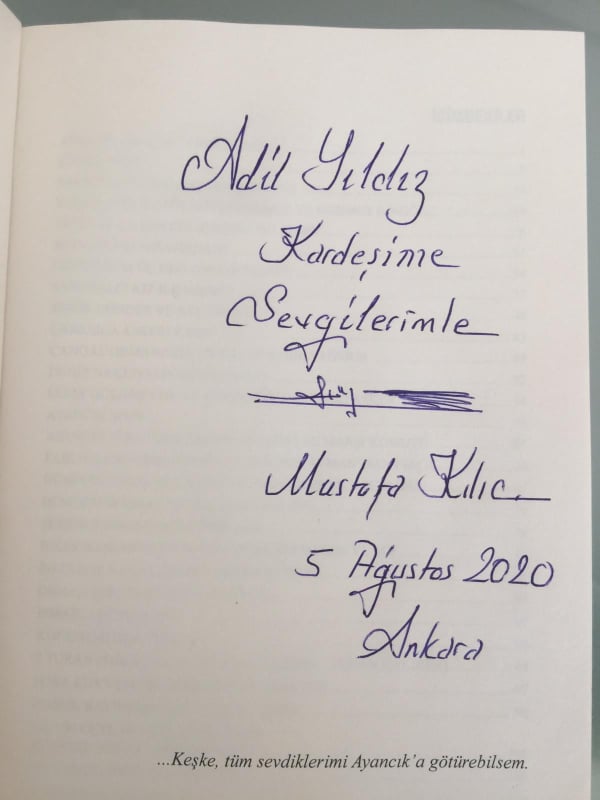 Adil Yıldız
Kardeşime
Sevgilerimle
Mustafa Kılıc
5 Ağustos 2020
Ankara
...Keşke, tüm sevdiklerimi Ayancık'a götürebilsem.